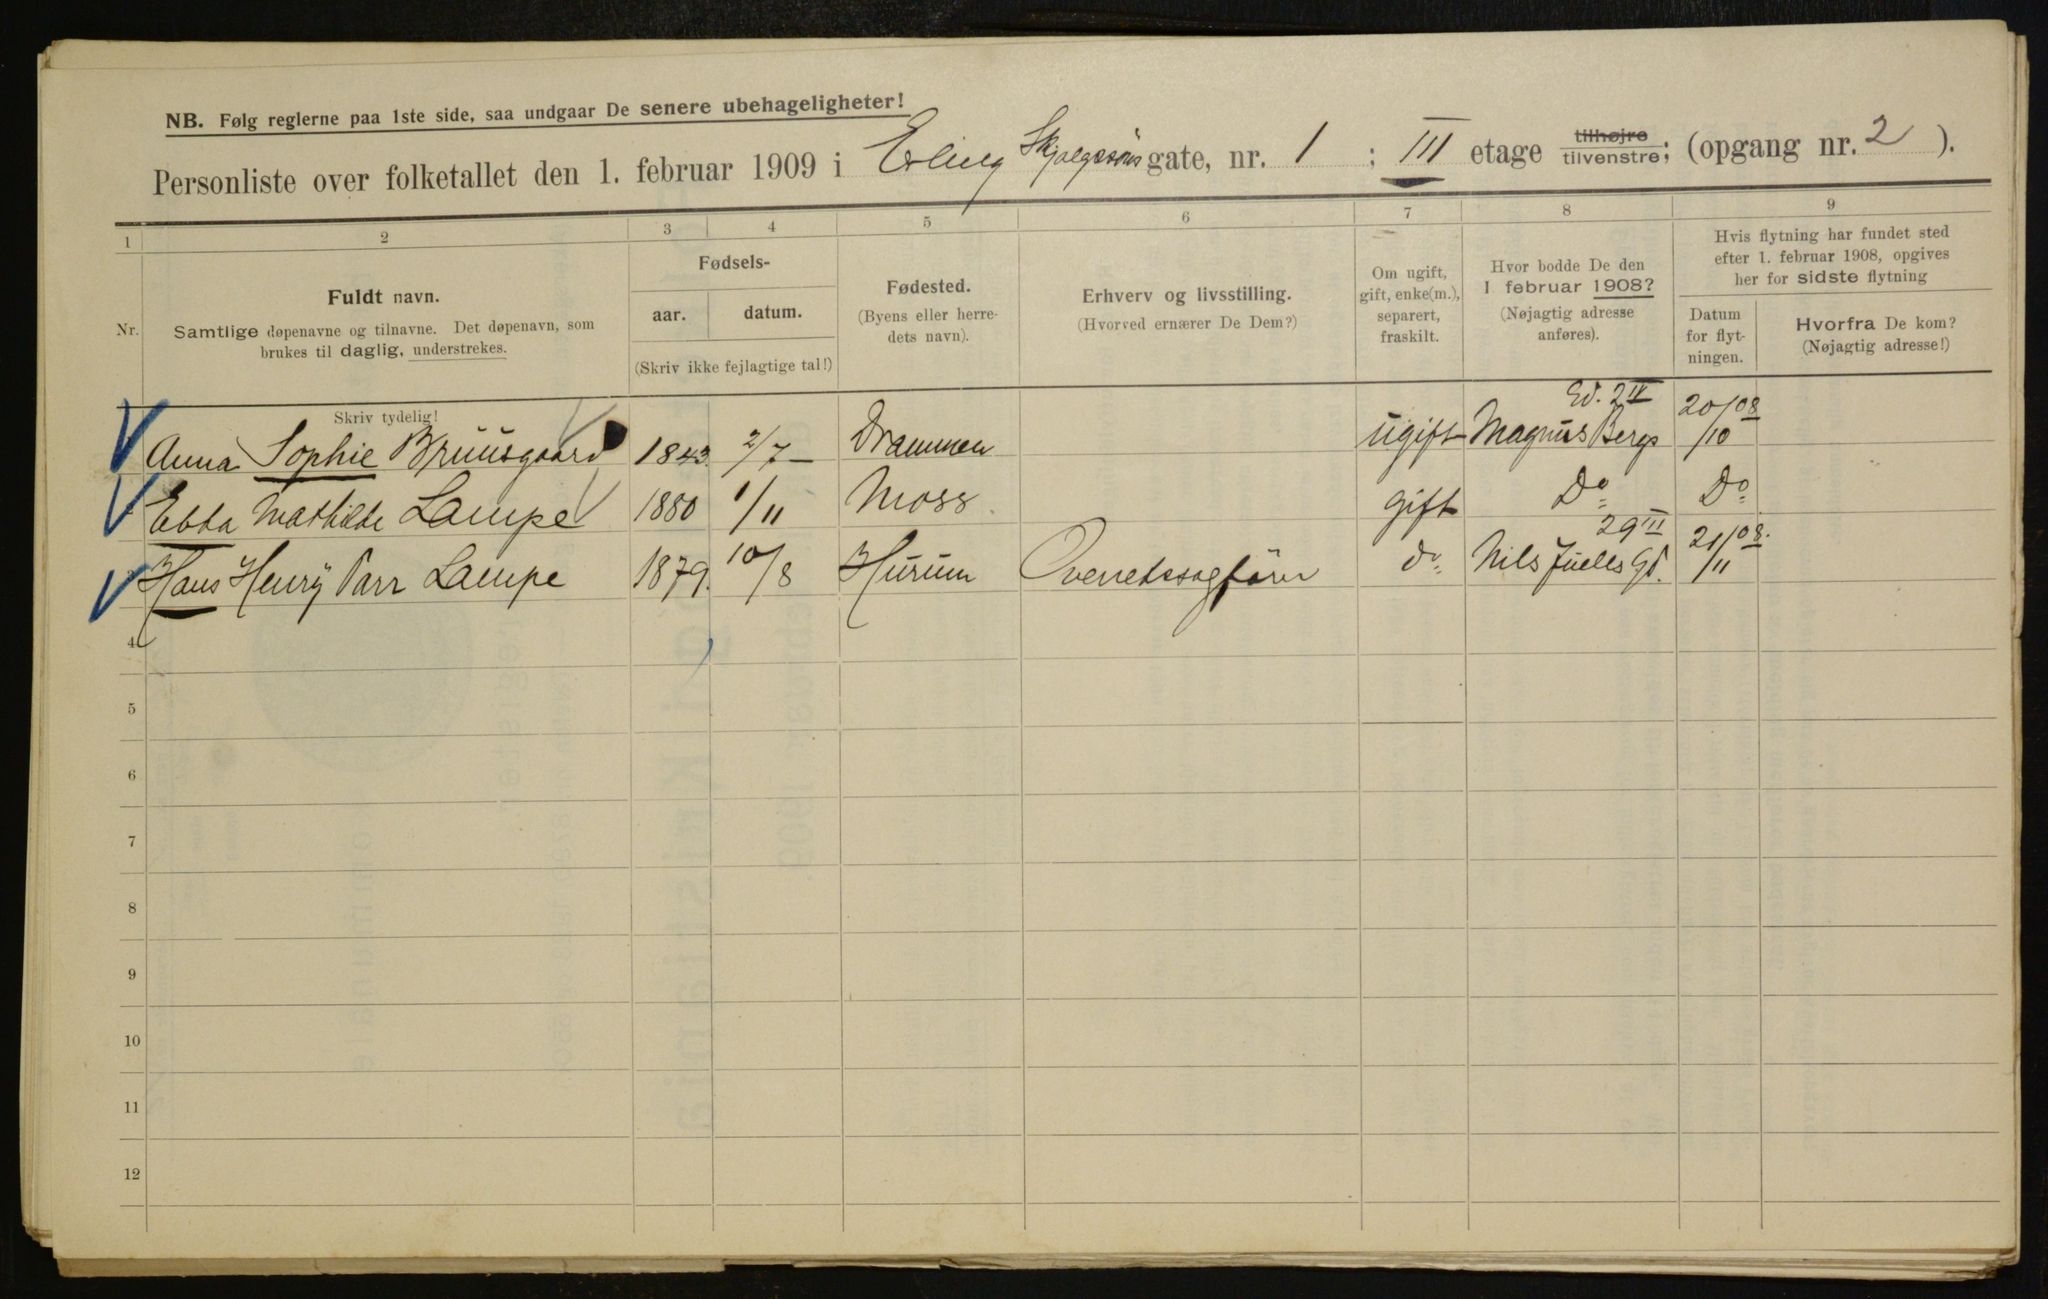 NB. Følg reglerne paa 1ste side, saa undgaar De senere ubehageligheter!
Personliste over folketallet den 1. februar 1909 i Erling Skjalgssøns gate, nr. 1 ; III etage tilhøjre tilvenstre; (opgang nr. 2 ).
1 2 3 4 5 6 7 8 9
Nr.
Fuldt navn.
Samtlige døpenavne og tilnavne. Det døpenavn, som
brukes til daglig, understrekes.
Fødsels-
aar. datum.
(Skriv ikke fejlagtige tal!)
Fødested.
(Byens eller herre-
dets navn).
Erhverv og livsstilling.
(Hvorved ernærer De Dem?)
Om ugift,
gift, enke(m.),
separert,
fraskilt.
Hvor bodde De den
1 februar 1908?
(Nøjagtig adresse
anføres).
Hvis flytning har fundet sted
efter 1. februar 1908, opgives
her for sidste flytning
Datum
for flyt-
ningen.
Hvorfra De kom?
(Nøjagtig adresse!)
Skriv tydelig!
Anna Sophie Bruusgaard 1843. 2/7 Drammen ugift Magnus Bergs Gd. 2 II 20/10 08
Ebba Mathilde Lampe 1880 1/11 Moss gift Do Do
Hans Henry Parr Lampe 1879. 10/8 Hurum Overretssagfører do Nils Juells Gd. 29 III 21/11 08.
4
5
6
7
8
9
10
11
12